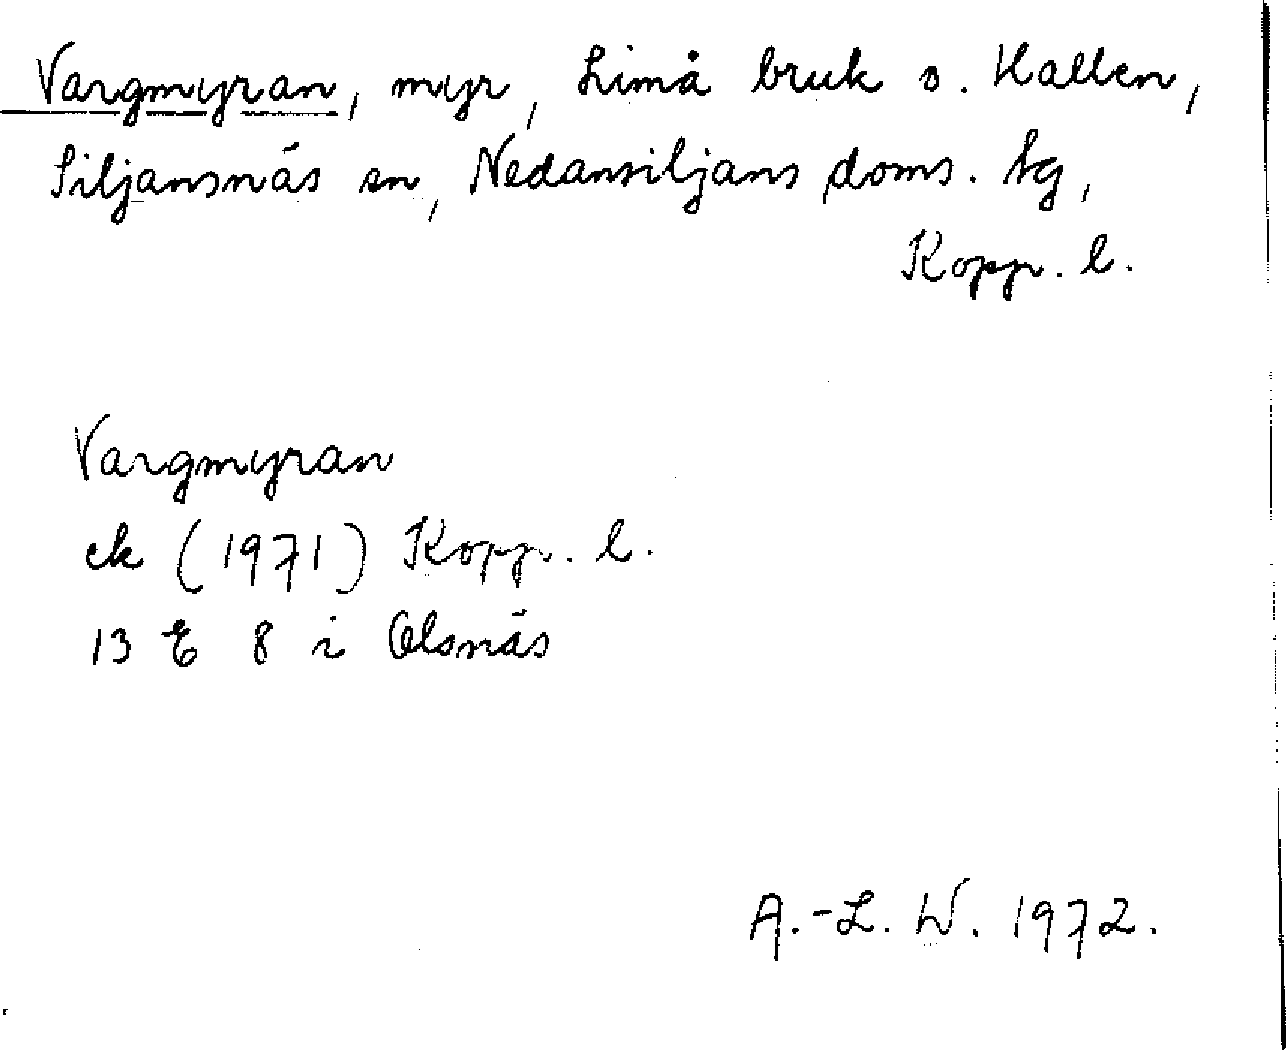 Vargmyran, myr, Limå bruk o. Hallen,
Siljansnäs sn, Nedansiljans doms. tg,
Kopp. l.
Vargmyran
ek (1971) Kopp. l.
13 E 8 i Olsnäs
A.-L. W. 1972.